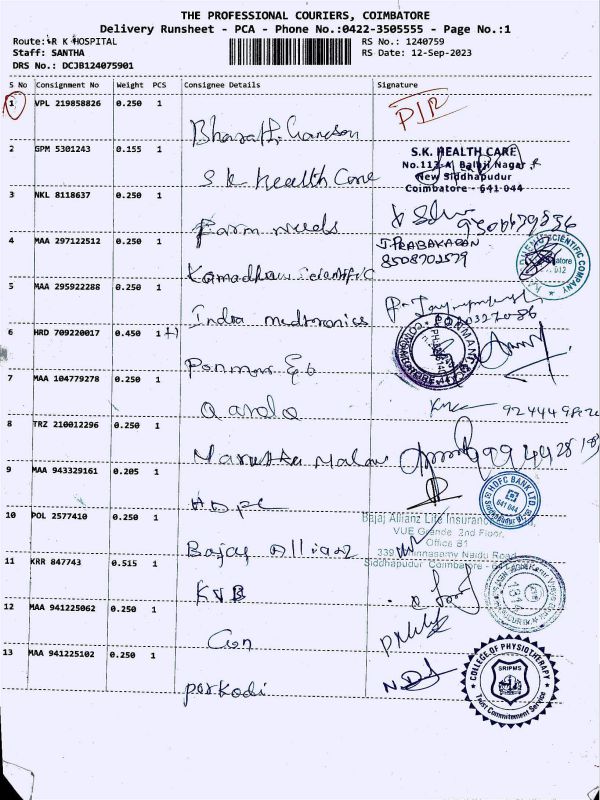 THE PROFESSIONAL COURIERS, COIMBATORE
Delivery Runsheet - PCA - Phone No.:0422-3505555 - Page No.:1
Route: R K HOSPITAL
RS No.: 1240759
Staff: SANTHA
RS Date: 12-Sep-2023
DRS No.: DCJB124075901
S No Consignment No Weight PCS Consignee Details Signature
1 VPL 219858826 0.250 1
Bharathi Ganesan
2 GPM 5301243 0.155 1
S.K. HEALTH CARE
No.113-A, Balaji Nagar
New Siddhapudur
Coimbatore - 641 044
S K Health Care
3 NKL 8118637 0.250 1
Farm needs
4 MAA 297122512 0.250 1
J. PRABAKARAN
8508702579
SCIENTIFIC COMPANY
5 MAA 295922288 0.250 1
India medtronics
6 HRD 709220017 0.450 1
7 MAA 104779278 0.250 1
8 TRZ 210012296 0.250 1
9 MAA 943329161 0.205 1
HDFC BANK LTD
641 044
Siddhapudur
10 POL 2577410 0.250 1
Bajaj Allianz Life Insurance
VUE Grande 2nd Floor,
Office B1
339 Chinnasamy Naidu Road
Siddhapudur Coimbatore
Bajaj Allianz
11 KRR 847743 0.515 1
KVB
12 MAA 941225062 0.250 1
13 MAA 941225102 0.250 1
COLLEGE OF PHYSIOTHERAPY
SRIPMS
Trust Commitment Service
porkodi